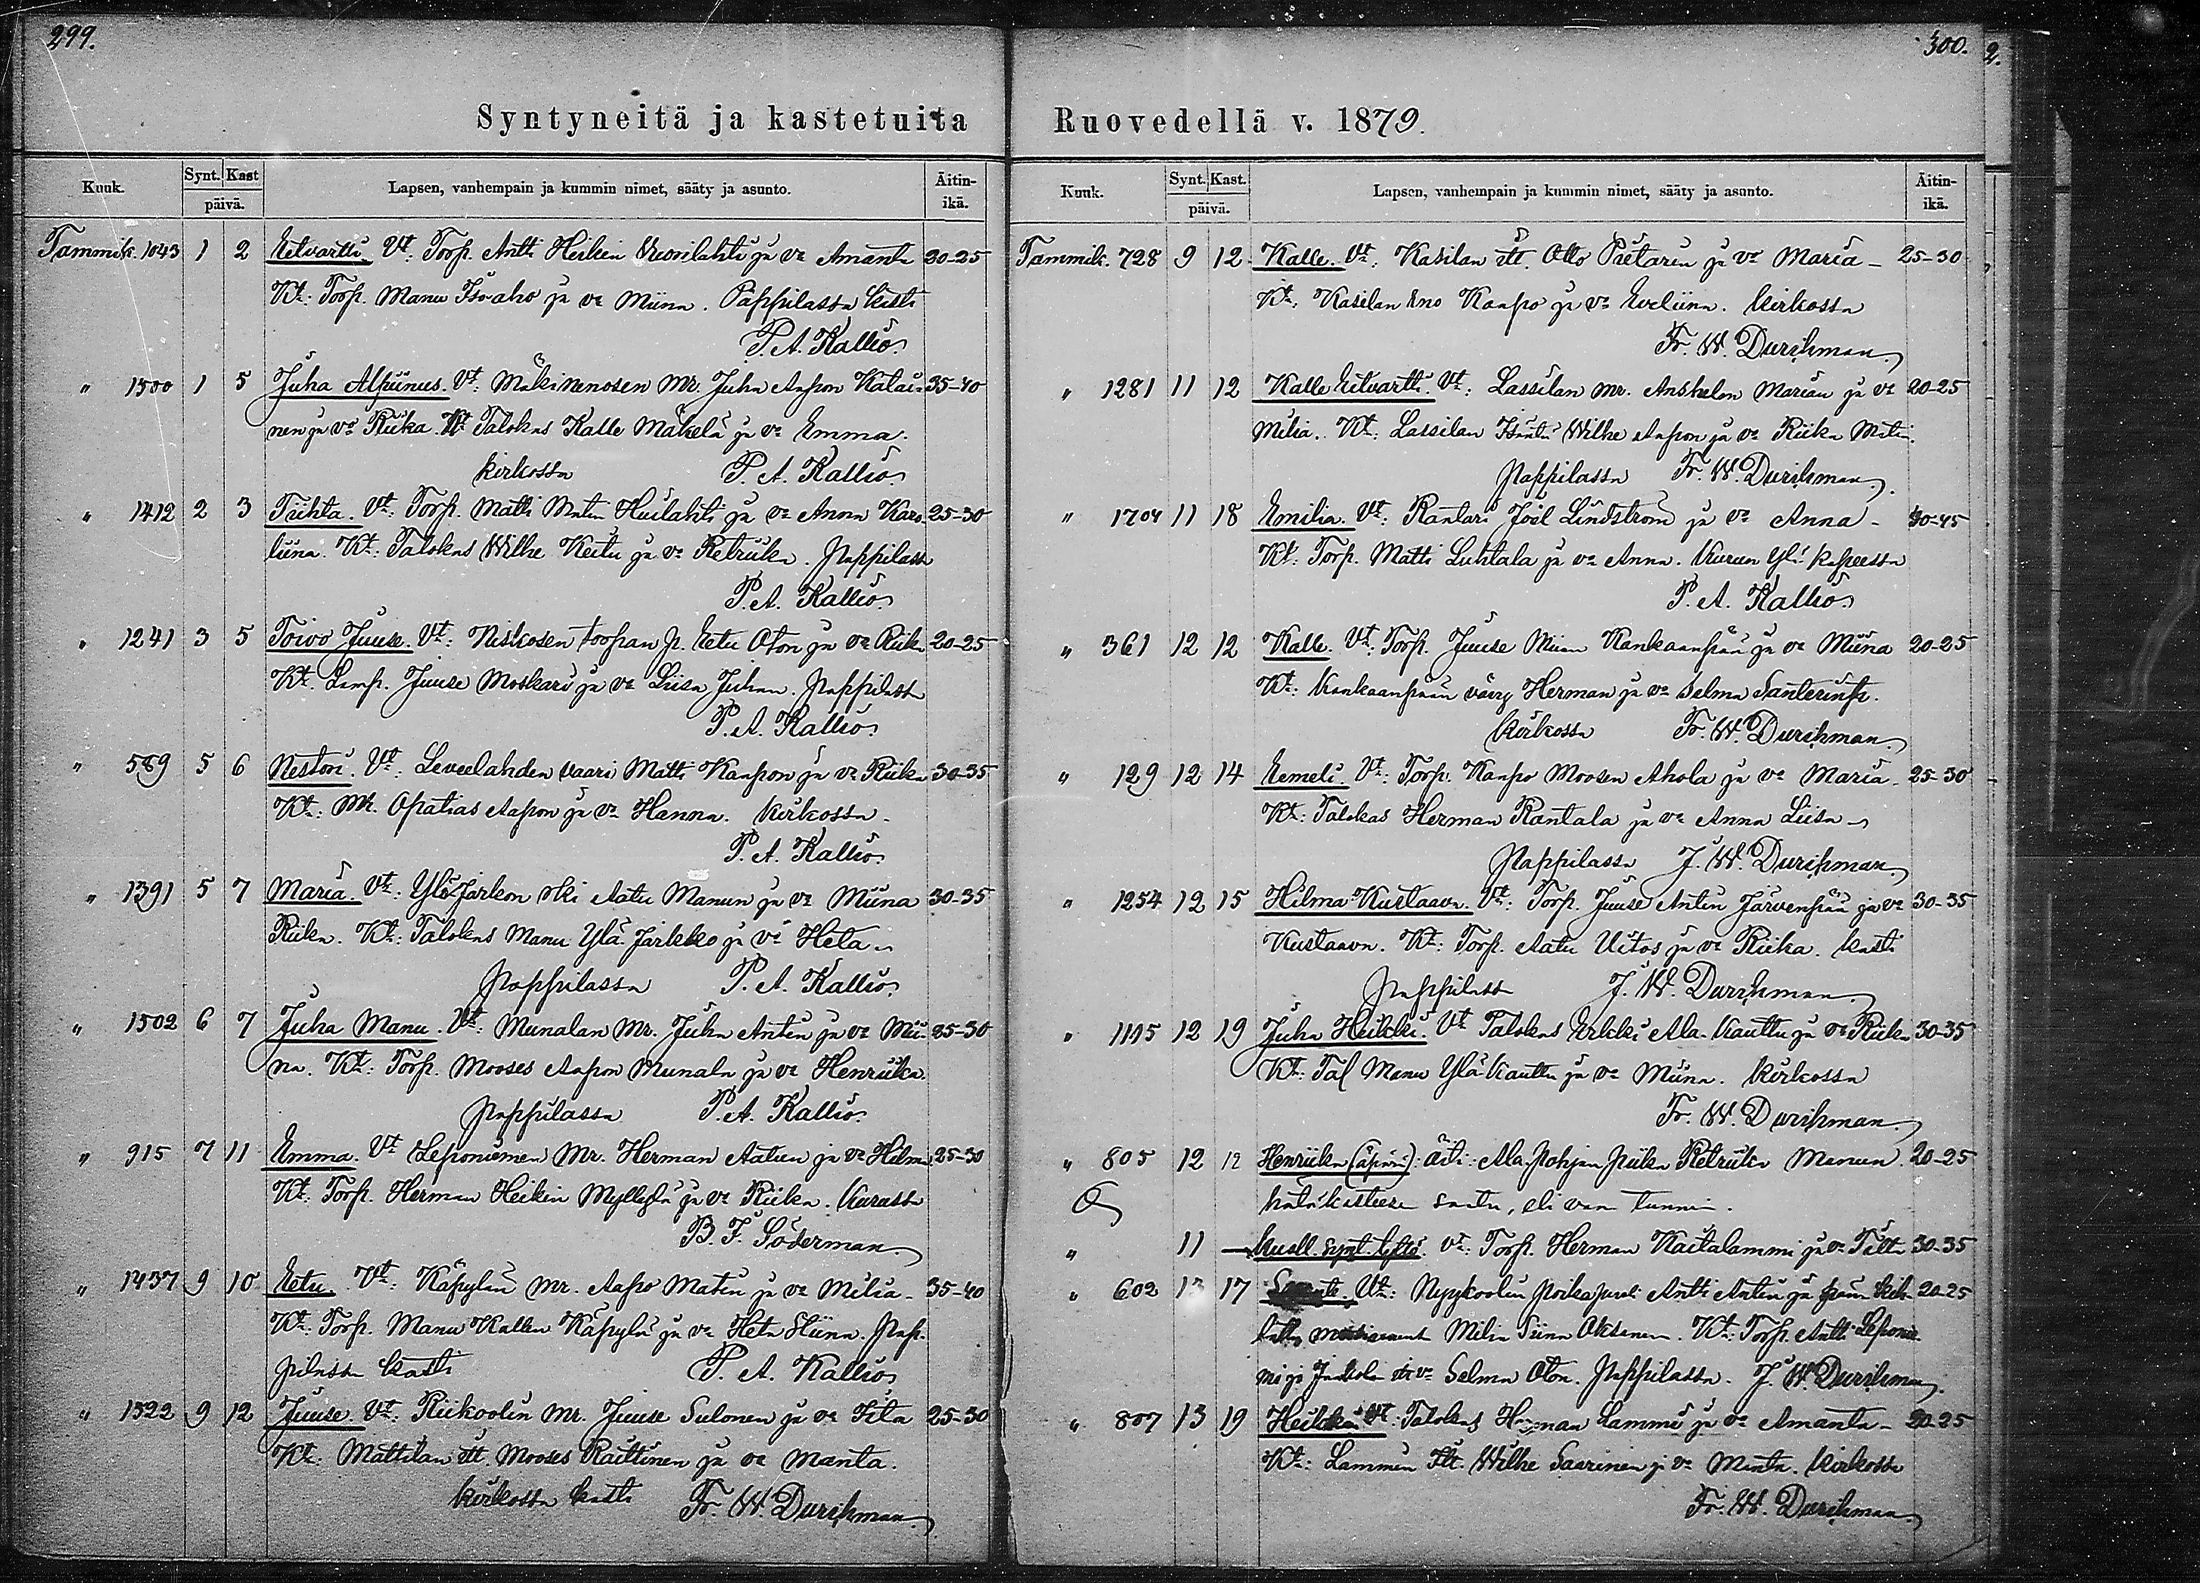 299.
Syntyneitä ja kastetuita
Kuuk. Synt. Kast päivä. Lapsen, vanhempain ja kummin nimet, sääty ja asunto. Äitin-ikä.
Tammik. 1043 1 2 Eetvartti. Vt. Torp. Antti Heikin Vuorilahti ja vo Amanta 20-25
Kt: Torp. Manu Isoaho ja vo Miina. Pappilassa kasti
P. A. Kallio.
" 1500 1 5 Juha Alpiinus. Vt: Mäkinenosen Mr. Juha Aapon Katai- 35-40
nen ja vo Riika. Kt Talokas Kalle Mäkelä ja vo Emma.
kirkossa P. A. Kallio.
" 1412 2 3 Tiihta. Vt: Torp. Matti Matin Huilahti ja vo Anna Karo- 25-30
liina. Kt: Talokas Wilhe Keitu ja vo Retriika. Pappilassa
P. A. Kallio.
" 1241 3 5 Toivo Juuse. Vt: Niskosen torpan p. Eetu Oton ja vo Riika 20-25
Kt. Lamp. Juuse Moskari ja vo Liisa Juhan. Pappilassa
P. A. Kallio.
" 589 5 6 Nestori. Vt: Leveelahden vaari Matti Kaapon ja vo Riika 30-35
Kt: Mk. Opatias Aapon ja vo Hanna. Kirkossa.
P. A. Kallio.
" 1391 5 7 Maria. Vt: Ylä-Jarkon rki Aatu Manun ja vo Miina 30-35
Riika. Kt: Talokas Manu Ylä-Jarkko ja vo Heta.
Pappilassa P. A. Kallio.
" 1502 6 7 Juha Manu. Vt: Munalan Mr. Juha Antin ja vo Mii- 25-30
na. Kt: Torp. Mooses Aapon Munala ja vo Henriika.
Pappilassa P. A. Kallio.
" 915 7 11 Emma. Vt Leponiemen Mr. Herman Aatun ja vo Helma 25-30
Kt: Torp. Herman Heikin Myllylä ja vo Riika. Kurussa
B. F. Söderman.
" 1437 9 10 Eetu. Vt: Käpylän Mr. Aapo Matin ja vo Milia - 35-40
Kt: Torp. Manu Kallen Käpylä ja vo Heta Stiina. Pap-
pilassa kasti P. A. Kallio.
" 1522 9 12 Juuse. Vt: Riikoolin Mr. Juuse Sulonen ja vo Iita 25-30
Kt: Mattilan itt. Mooses Raittinen ja vo Manta.
kirkossa kasti Fr. W. Durchman.
300.
2.
Ruovedellä v. 1879.
Kuuk. Synt. Kast. päivä. Lapsen, vanhempain ja kummin nimet, sääty ja asunto. Äitin-ikä.
Tammik. 728 9 12 Kalle. Vt. Kasilan itt. Otto Pietarin ja vo Maria - 25-30
Kt: Kasilan Eno Kaapo ja vo Eveliina. Kirkossa
Fr. W. Durchman.
" 1281 11 12 Kalle Eetvartti. Vt: Lassilan Mr. Anshelm Marian ja vo 20-25
Milia. Kt: Lassilan Isäntä Wilhe Aapon ja vo Riika Matin.
Pappilassa Fr. W. Durchman.
" 1704 11 18 Emilia. Vt: Räntäri Joel Lindström ja vo Anna - 40-45
Kt: Torp. Matti Luhtala ja vo Anna. Kurun yli-
P. A. Kallio.
" 361 12 12 Kalle. Vt: Torp. Juuse Miinan Kankaanpää ja vo Miina 20-25
Kt: Kankaanpään vävy Herman ja vo Selma Santerintr.
Kirkossa Fr. W. Durchman.
" 129 12 14 Eemeli. Vt: Torp. Kaapo Moosen Ahola ja vo Maria - 25-30
Kt: Talokas Herman Rantala ja vo Anna Liisa -
Pappilassa J. W. Durchman.
" 1254 12 15 Hilma Kustaava. Vt: Torp. Juuse Antin Järvenpää ja vo 30-35
Kustaava. Kt: Torp. Aatu Uitos ja vo Riika. Kasti
Pappilassa J. W. Durchman.
" 1105 12 19 Juha Heikki. Vt Talokas Erkki Ala-Kauttu ja vo Riika 30-35
Kt: Tal Manu Ylä-Kauttu ja vo Miina. Kirkossa
Fr. W. Durchman.
" 805 12 12 Henriika (äpärä): äiti: Ala-Pohjan piika Retriika Manun. 20-25
hätäkasteen saatu, eli van tunnin.
" 11 — Kuoll. synt. tyttö. Vt: Torp. Herman Kaitalammi ja vo Tilta 30-35
" 602 13 17 Vt: Nyykoolin poikapuoli Antti Antin ja 20-25
Milia Siina Oksanen. Kt: Torp. Antti Leponie-
mi ja vo Selma Oton. Pappilassa. J. W. Durchman.
" 807 13 19 Heikki. Vt: Talokas Herman Lammi ja vo Amanta - 20-25
Kt: Lammin Itt. Wilhe Saarinen j. vo Manta. Kirkossa
Fr. W. Durchman.